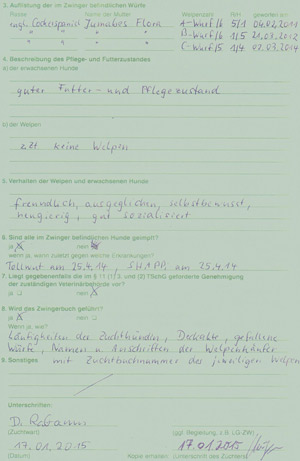 3. Auflistung der im Zwinger befindlichen Würfe
Rasse Name der Mutter Welpenzahl R/H geworfen am
engl. Cockerspaniel Flora A-Wurf/6 5/1 04.02.2011
" " " B-Wurf/6 1/5 21.03.2012
" " " C-Wurf/5 1/4 02.03.2014
4. Beschreibung des Pflege- und Futterzustandes
a) der erwachsenen Hunde
guter Futter- und Pflegezustand
b) der Welpen
zZt keine Welpen
5. Verhalten der Welpen und erwachsenen Hunde
freundlich, ausgeglichen, selbstbewusst,
neugierig, gut sozialisiert
6. Sind alle im Zwinger befindlichen Hunde geimpft?
ja X nein
wenn ja, wann zuletzt gegen welche Erkrankungen?
Tollwut am 25.4.14, SHLPP, am 25.4.14
7. Liegt gegebenenfalls die im § 11 (1) 3. und (2) TSchG geforderte Genehmigung
der zuständigen Veterinärbehörde vor?
ja nein X
8. Wird das Zwingerbuch geführt?
ja X nein
Wenn ja, wie?
Läufigkeiten der Zuchthündin, Deckakte, gefallene
Würfe, Namen u. Anschriften der Welpenkäufer
9. Sonstiges mit Zuchtbuchnummer des jeweiligen Welpen
Unterschriften:
D.
(Zuchtwart) (ggf. Begleitung, z.B. LG ZW)
17.01.2015 17.01.2015
(Datum) Kopie erhalten (Unterschrift des Züchters)